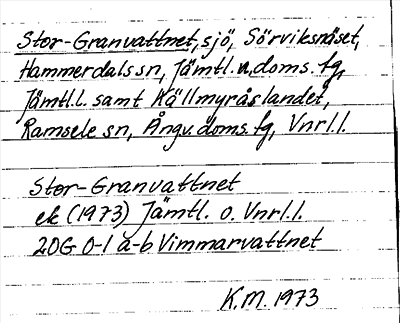 Stor-Granvattnet, sjö, Sörviksnäset,
Hammerdals sn, Jämtl. n. doms. fg,
Jämtl.l. samt Källmyråslandet,
Ramsele sn, Ångv. doms. fg, Vnrl.l.
Stor-Granvattnet
ek (1973) Jämtl. o. Vnrl.l.
20G 0-1 a-b Vimmarvattnet
K.M. 1973